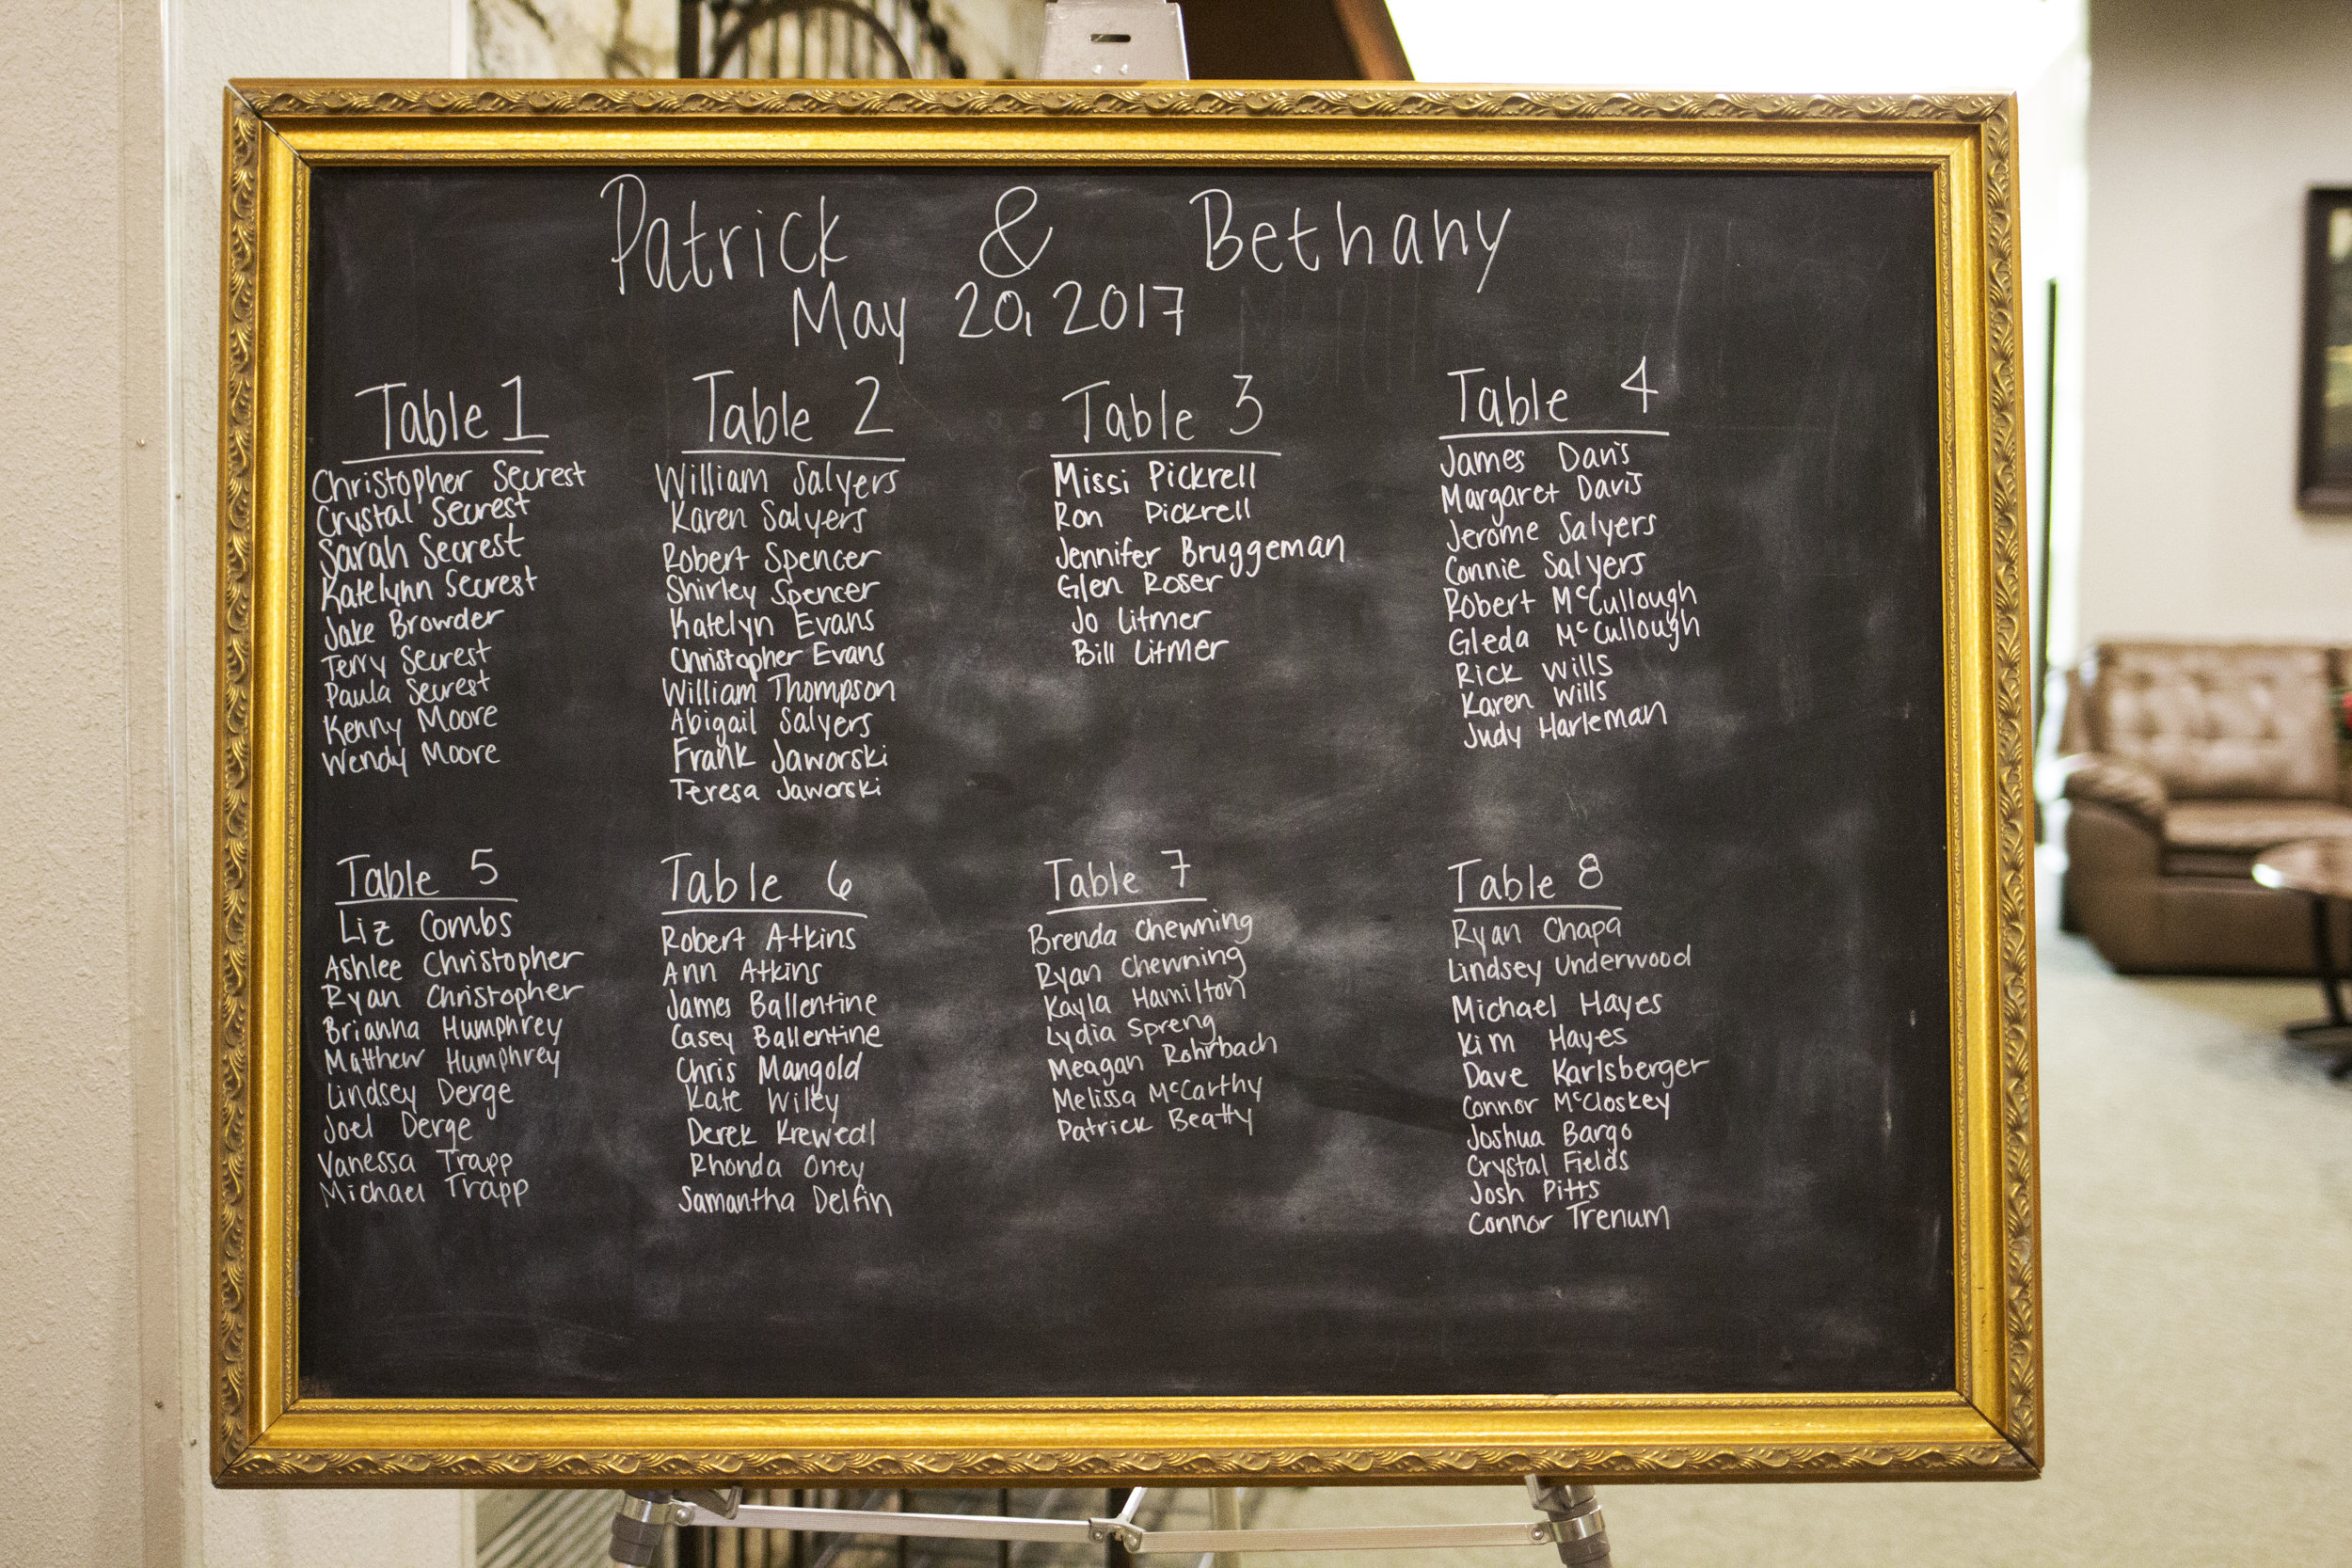 Patrick & Bethany
May 20, 2017
Table 1
Christopher Secrest
Crystal Secrest
Sarah Secrest
Katelynn Secrest
Jake Browder
Terry Secrest
Paula Secrest
Kenny Moore
Wendy Moore
Table 2
William Salyers
Karen Salyers
Robert Spencer
Shirley Spencer
Katelyn Evans
Christopher Evans
William Thompson
Abigail Salyers
Frank Jaworski
Teresa Jaworski
Table 3
Missi Pickrell
Ron Pickrell
Jennifer Bruggeman
Glen Roser
Jo Litmer
Bill Litmer
Table 4
James Davis
Margaret Davis
Jerome Salyers
Connie Salyers
Robert McCullough
Gleda McCullough
Rick Wills
Karen Wills
Judy Harleman
Table 5
Liz Combs
Ashlee Christopher
Ryan Christopher
Brianna Humphrey
Matthew Humphrey
Lindsey Derge
Joel Derge
Vanessa Trapp
Michael Trapp
Table 6
Robert Atkins
Ann Atkins
James Ballentine
Casey Ballentine
Chris Mangold
Kate Wiley
Derek Krewedl
Rhonda Oney
Samantha Delfin
Table 7
Brenda Chewning
Ryan Chewning
Kayla Hamilton
Lydia Spreng
Meagan Rohrbach
Melissa McCarthy
Patrick Beatty
Table 8
Ryan Chapa
Lindsey Underwood
Michael Hayes
Kim Hayes
Dave Karlsberger
Connor McCloskey
Joshua Bargo
Crystal Fields
Josh Pitts
Connor Trenum